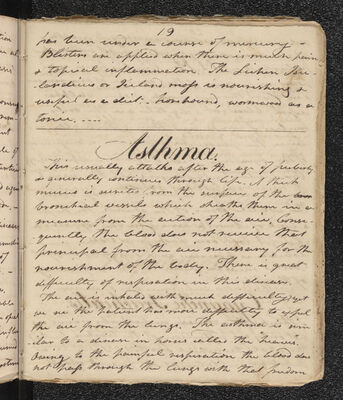 19
has been under a course of mercury -
Blisters are applied when there is much pain
& topical inflammation. The Lichen Is-
landicus or Iceland moss is nourishing &
useful as a diet. - horehound, wormwood as a
tonic. ----
Asthma.
This usually attacks after the age of puberty
& generally continues through life. A thick
mucus is secreted from the surface of the
bronchial vessels which sheaths them in a
measure from the action of the air, conse-
quently the blood does not receive that
principal from the air necessary for the
nourishment of the body. There is great
difficulty of respiration in this disease.
The air is inhaled with much difficulty, yet
the patient has more difficulty to expel
the air from the lungs. The asthma is sim-
ilar to a disease in horses called the heaves.
Owing to the painful respiration the blood does
not pass through the lungs with that freedom